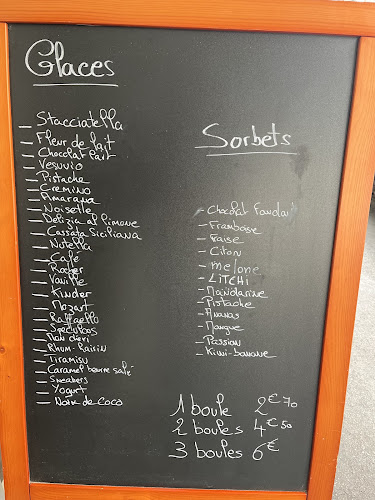 Glaces
— Stacciatella
— Fleur de lait
— Chocolat lait
— Vesuvio
— Pistache
— Cremino
— Amarana
— Noisette
— Delizia al limone
— Cassata Siciliana
— Nutella
— Café
— Rocher
— Vanille
— Kinder
— Mozart
— Raffaello
— Speculoos
— Mon chéri
— Rhum-Raisin
— Tiramisu
— Caramel beurre salé
— Sneakers
— Yogurt
— Noix de coco
Sorbets
— Chocolat Fondant
— Framboise
— Fraise
— Citron
— Melone
— LITCHI
— Mandarine
— Pistache
— Ananas
— Mangue
— Passion
— Kiwi-banane
1 boule 2€70
2 boules 4€50
3 boules 6€